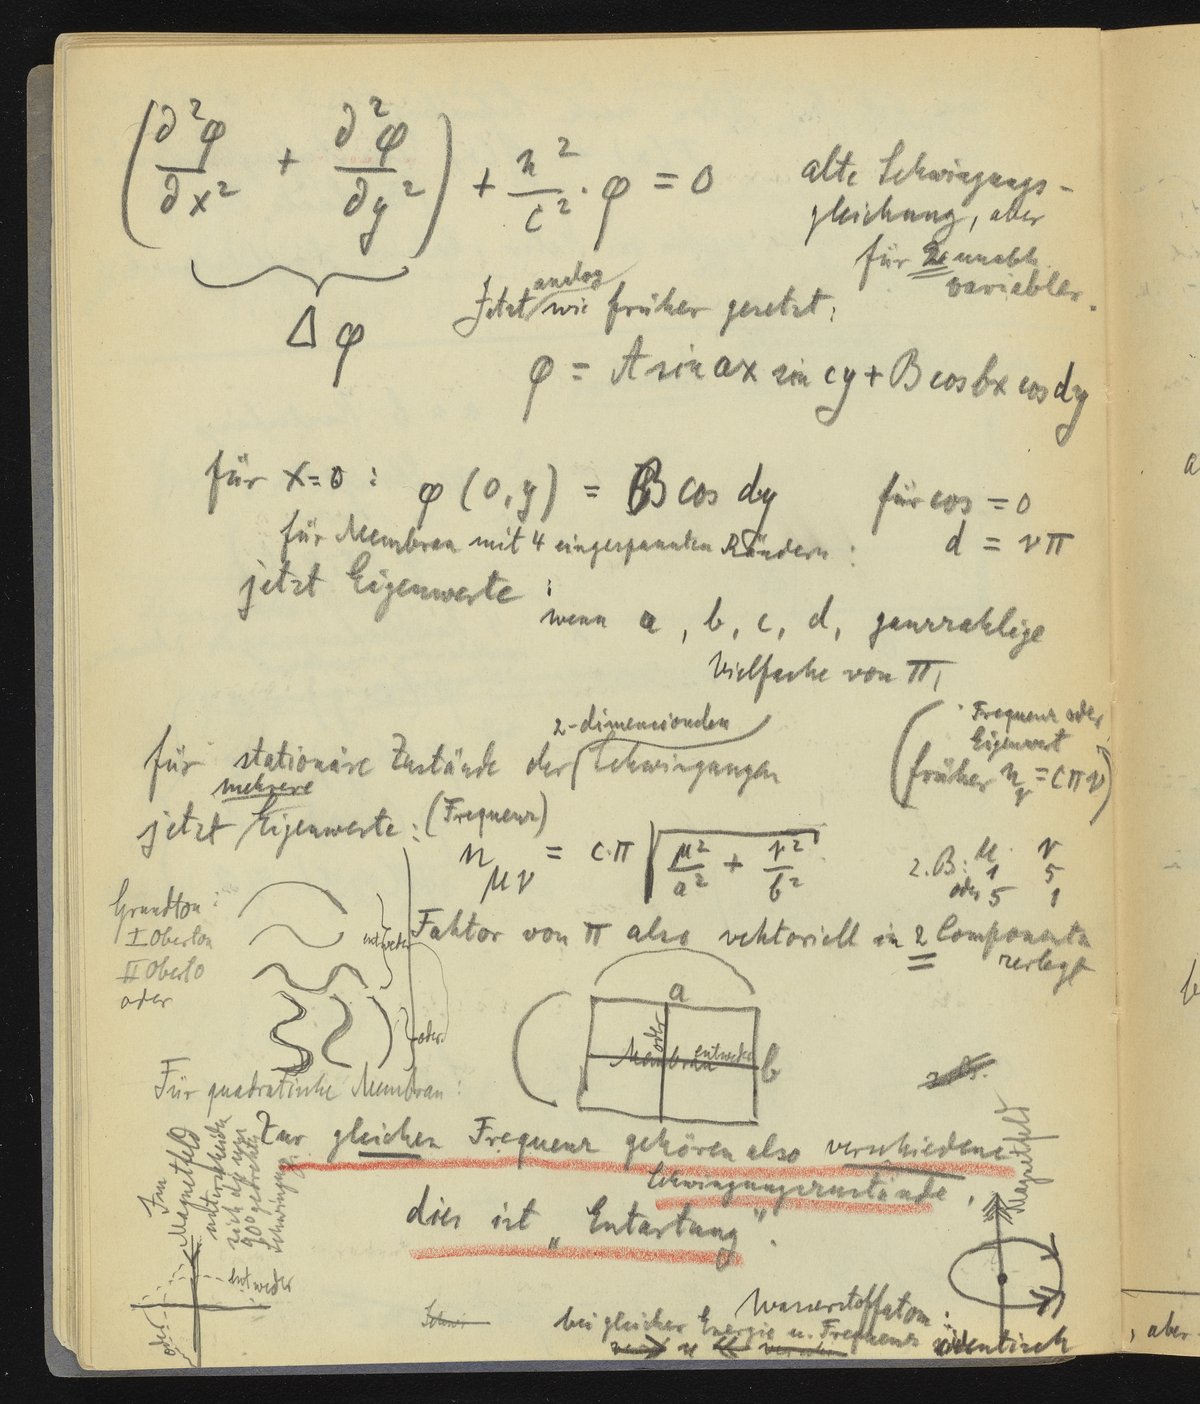 (∂²φ/∂x² + ∂²φ/∂y²) + n²/c² · φ = 0
alte Schwingungs-
gleichung, aber
für 2 unabh.
variablen.
Δφ
Jetzt analog wie früher gesetzt:
φ = A sin ax sin cy + B cos bx cos dy
für x = 0 : φ (0, y) = B cos dy für cos = 0
für Membran mit 4 eingespannten Rändern : d = νπ
jetzt Eigenwerte :
wenn a, b, c, d, ganzzahlige
Vielfache von π,
für stationäre Zustände der 2-dimensionalen Schwingungen
(Frequenz oder
Eigenwert
früher nν = cπν)
jetzt mehrere Eigenwerte : (Frequenz)
nμν = c·π √(μ²/a² + ν²/b²)
z. B: μ ν
1 5
oder 5 1
Faktor von π also vektoriell in 2 Componenten
zerlegt
Grundton :
I Oberton
II Oberto
oder
entweder
oder
a
b
Membran
oder
entweder
Für quadratische Membran :
Zur gleichen Frequenz gehören also verschiedene
Schwingungszustände,
dies ist „Entartung".
Im
Magnetfeld
unterscheiden
sich da um
90° gedrehte
Schwingung
entweder
oder
Magnetfeld
Wasserstoffatom :
bei gleicher Energie u. Frequenz
identisch
, aber